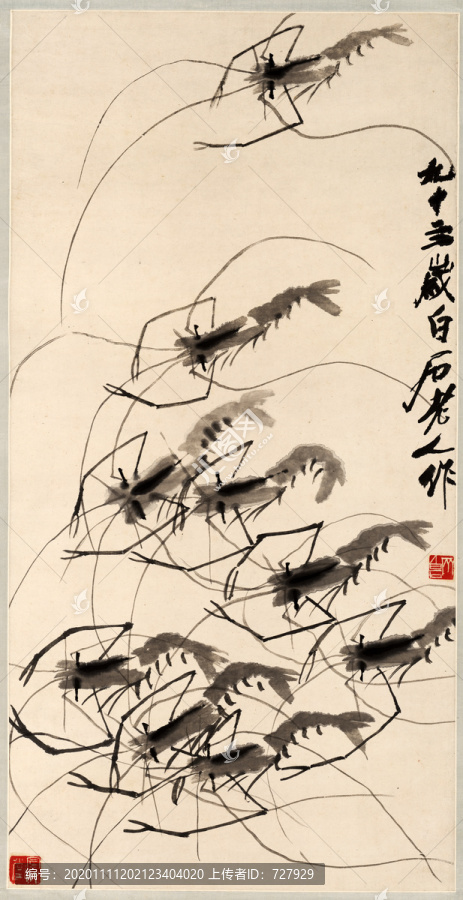 九十五歲白石老人作
编号: 20201111202123404020 上传者ID: 727929